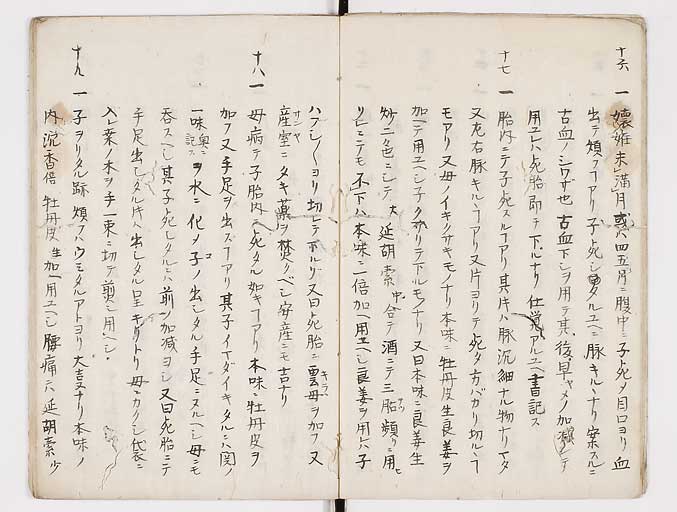 十六 一 懐姙未満月或八四五月ニ腹中ニ子死〆目口ヨリ血
出テ煩フアリ子死シタルユヘニ脉キルハナリ案スルニ
古血ノシワザ也 古血下シヲ用テ其後早ヤメノ加減シテ
用ユレハ死胎即テ下ルナリ仕覚アルユヘ書記ス
十七 一 胎内ニテ子死スルアリ其片ハ脉沉細ナル物ナリイタ
又左右脉キルヽアリ又片ヨリテ死タ方バカリ切ルヽ
モアリ又母ノイキクサキモノナリ本味ニ牡丹皮生良姜ヲ
加ヘテ用ユヘシ子クサリテ下ルモノナリ又曰本味ニ良姜生
炒ニ色ニシテ大延胡索中合テ酒ニテ三胎頻リニ用ヒ
リレニテモ不下ハ本味ニ一倍加ヘ用ユヘシ良姜ヲ用レハ子
ハブレ〳〵ヨリ切レテ下ルリ又曰死胎ニ雲母ヲ加フ又
産室ニタキ薬ヲ焚クベシ安産ニモ吉ナリ
十八 一 母病テ子胎内ヘ死タル如キアリ本味ニ牡丹皮ヲ
加フ又手足ヲ出ズアリ其子イマダイキタルニハ関ノ
一味奥ニ記スヲ水ニ化〆子ノ出シタル手足ニヌルヘシ母ニモ
呑スヘシ其子死シタルニハ前ノ加減ヨシ又曰死胎ニテ
手足出シタル片ハ出シタル呈キリトリ母ニカクシ代表ニ
入レ桑ノ木ヲ手一束ニ切テ煎シ用ヘシ
十九 一 子ヲリタル跡煩フハウミタルアトヨリ大事ナリ本味ノ
内沉香倍 牡丹皮生加ヘ用ユヘシ腰痛ニハ延胡索少